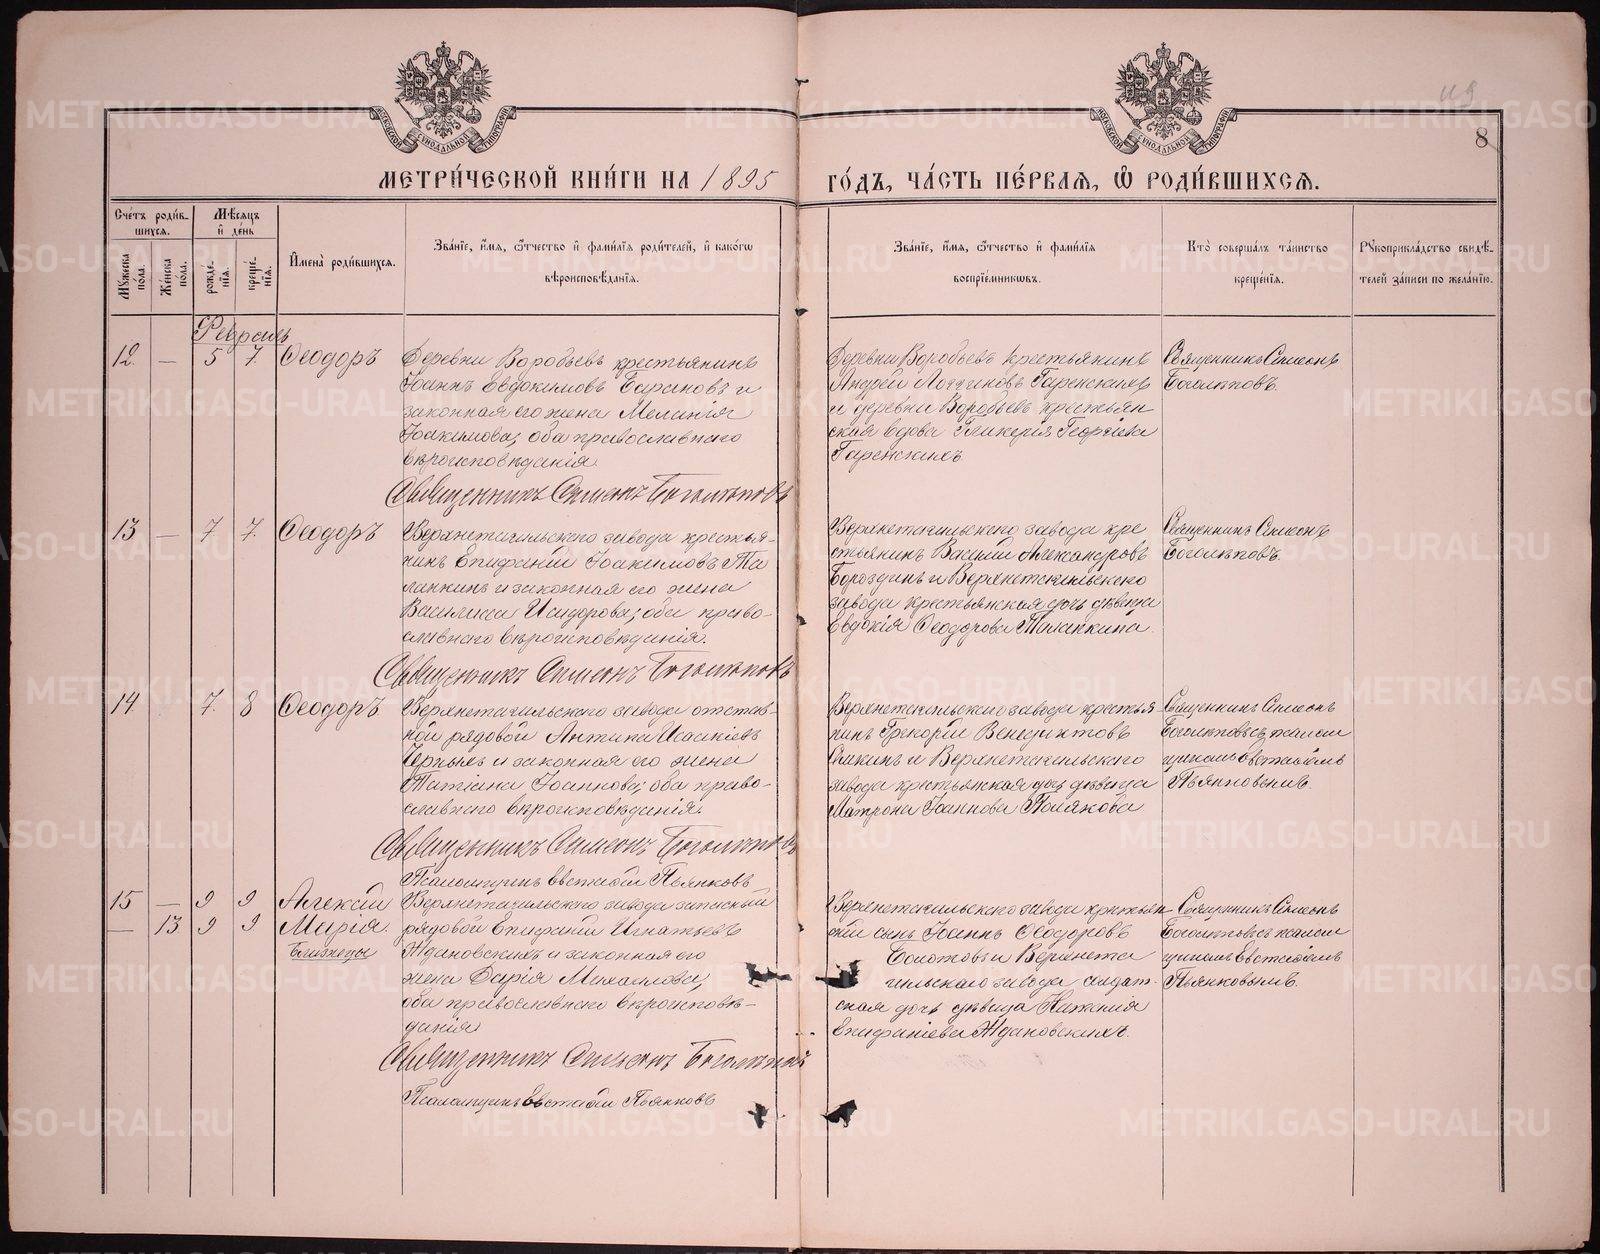 МЕТРИ́ЧЕСКОЙ КНИ́ГИ НА 1895 ГО́ДЪ, ЧА́СТЬ ПЕ́РВАЯ, Ѽ РОДИ́ВШИХСЯ.
8
МОСКОВСКОЙ СѴНОДАЛЬНОЙ ТИПОГРАФІИ
МОСКОВСКОЙ СѴНОДАЛЬНОЙ ТИПОГРАФІИ
Сче́тъ роди́в-
шихся.
Мѣ́сяцъ
и҆ де́нь
Мꙋ́жеска
по́ла.
Же́нска
по́ла.
рожде-
нія.
креще́-
нія.
И҆мена̀ роди́вшихся.
Зва́ніе, и҆́мя, ѻ҆́тчество и҆ фами́лія роди́телей, и҆ како́гѡ
вѣроисповѣ́данія.
Зва́ніе, и҆́мя, ѻ҆́тчество и҆ фами́лія
воспріе́мникѡвъ.
Кто̀ соверша́лъ та́инство
креще́нія.
Рꙋкоприкла́дство свидѣ́-
телей за́писи по жела́нію.
Февраль
12. — 5 7. Ѳеодоръ
Деревни Воробьевъ крестьянинъ
Іоаннъ Евдокимовъ и
законная его жена Меланія
Іоакимова, оба православнаго
вѣроисповѣданія.
Священникъ Симеонъ Боголѣповъ
Деревни Воробьевъ крестьянинъ
Андрей Гаренскихъ
и деревни Воробьевъ крестьян
ская вдова Гликерія Георгіева
Гаренскихъ.
Священникъ Симеонъ
Боголѣповъ.
13 — 7 7. Ѳеодоръ
Верхнетагильскаго завода крестья-
нинъ Епифаній Іоакимовъ Та
ланкинъ и законная его жена
Василиса Исидорова, оба право-
славнаго вѣроисповѣданія.
Священникъ Симеонъ Боголѣповъ
Верхнетагильскаго завода кре
стьянинъ Василій Александровъ
Бороздинъ и Верхнетагильскаго
завода крестьянская дочь дѣвица
Евдокія Ѳеодорова Таланкина.
Священникъ Симеонъ
Боголѣповъ.
14 — 7. 8 Ѳеодоръ
Верхнетагильскаго завода отстав-
ной рядовой Антипа Исаакіевъ
Черныхъ и законная его жена
Татіана Іоаннова, оба право-
славнаго вѣроисповѣданія.
Священникъ Симеонъ Боголѣповъ
Псаломщикъ Евстафій Пьянковъ
Верхнетагильскаго завода крестья
нинъ Григорій Венедиктовъ
и Верхнетагильскаго
завода крестьянская дочь дѣвица
Матрона Іоаннова Полякова
Священникъ Симеонъ
Боголѣповъ съ псалом
щикомъ Евстафіемъ
Пьянковымъ.
15 — 9 9 Алексій
— 13 9 9 Марія.
Близнецы
Верхнетагильскаго завода запасный
рядовой Епифаній Игнатьевъ
Ждановскихъ и законная его
жена Дарія Михайлова,
оба православнаго вѣроисповѣ-
данія
Священникъ Симеонъ Боголѣповъ
Псаломщикъ Евстафій Пьянковъ
Верхнетагильскаго завода крестьян
скій сынъ Іоаннъ Ѳеодоровъ
Болотовъ и Верхнета
гильскаго завода солдат-
ская дочь дѣвица Наталія
Епифаніева Ждановскихъ.
Священникъ Симеонъ
Боголѣповъ съ псалом
щикомъ Евстафіемъ
Пьянковымъ.
METRIKI.GASO-URAL.RU